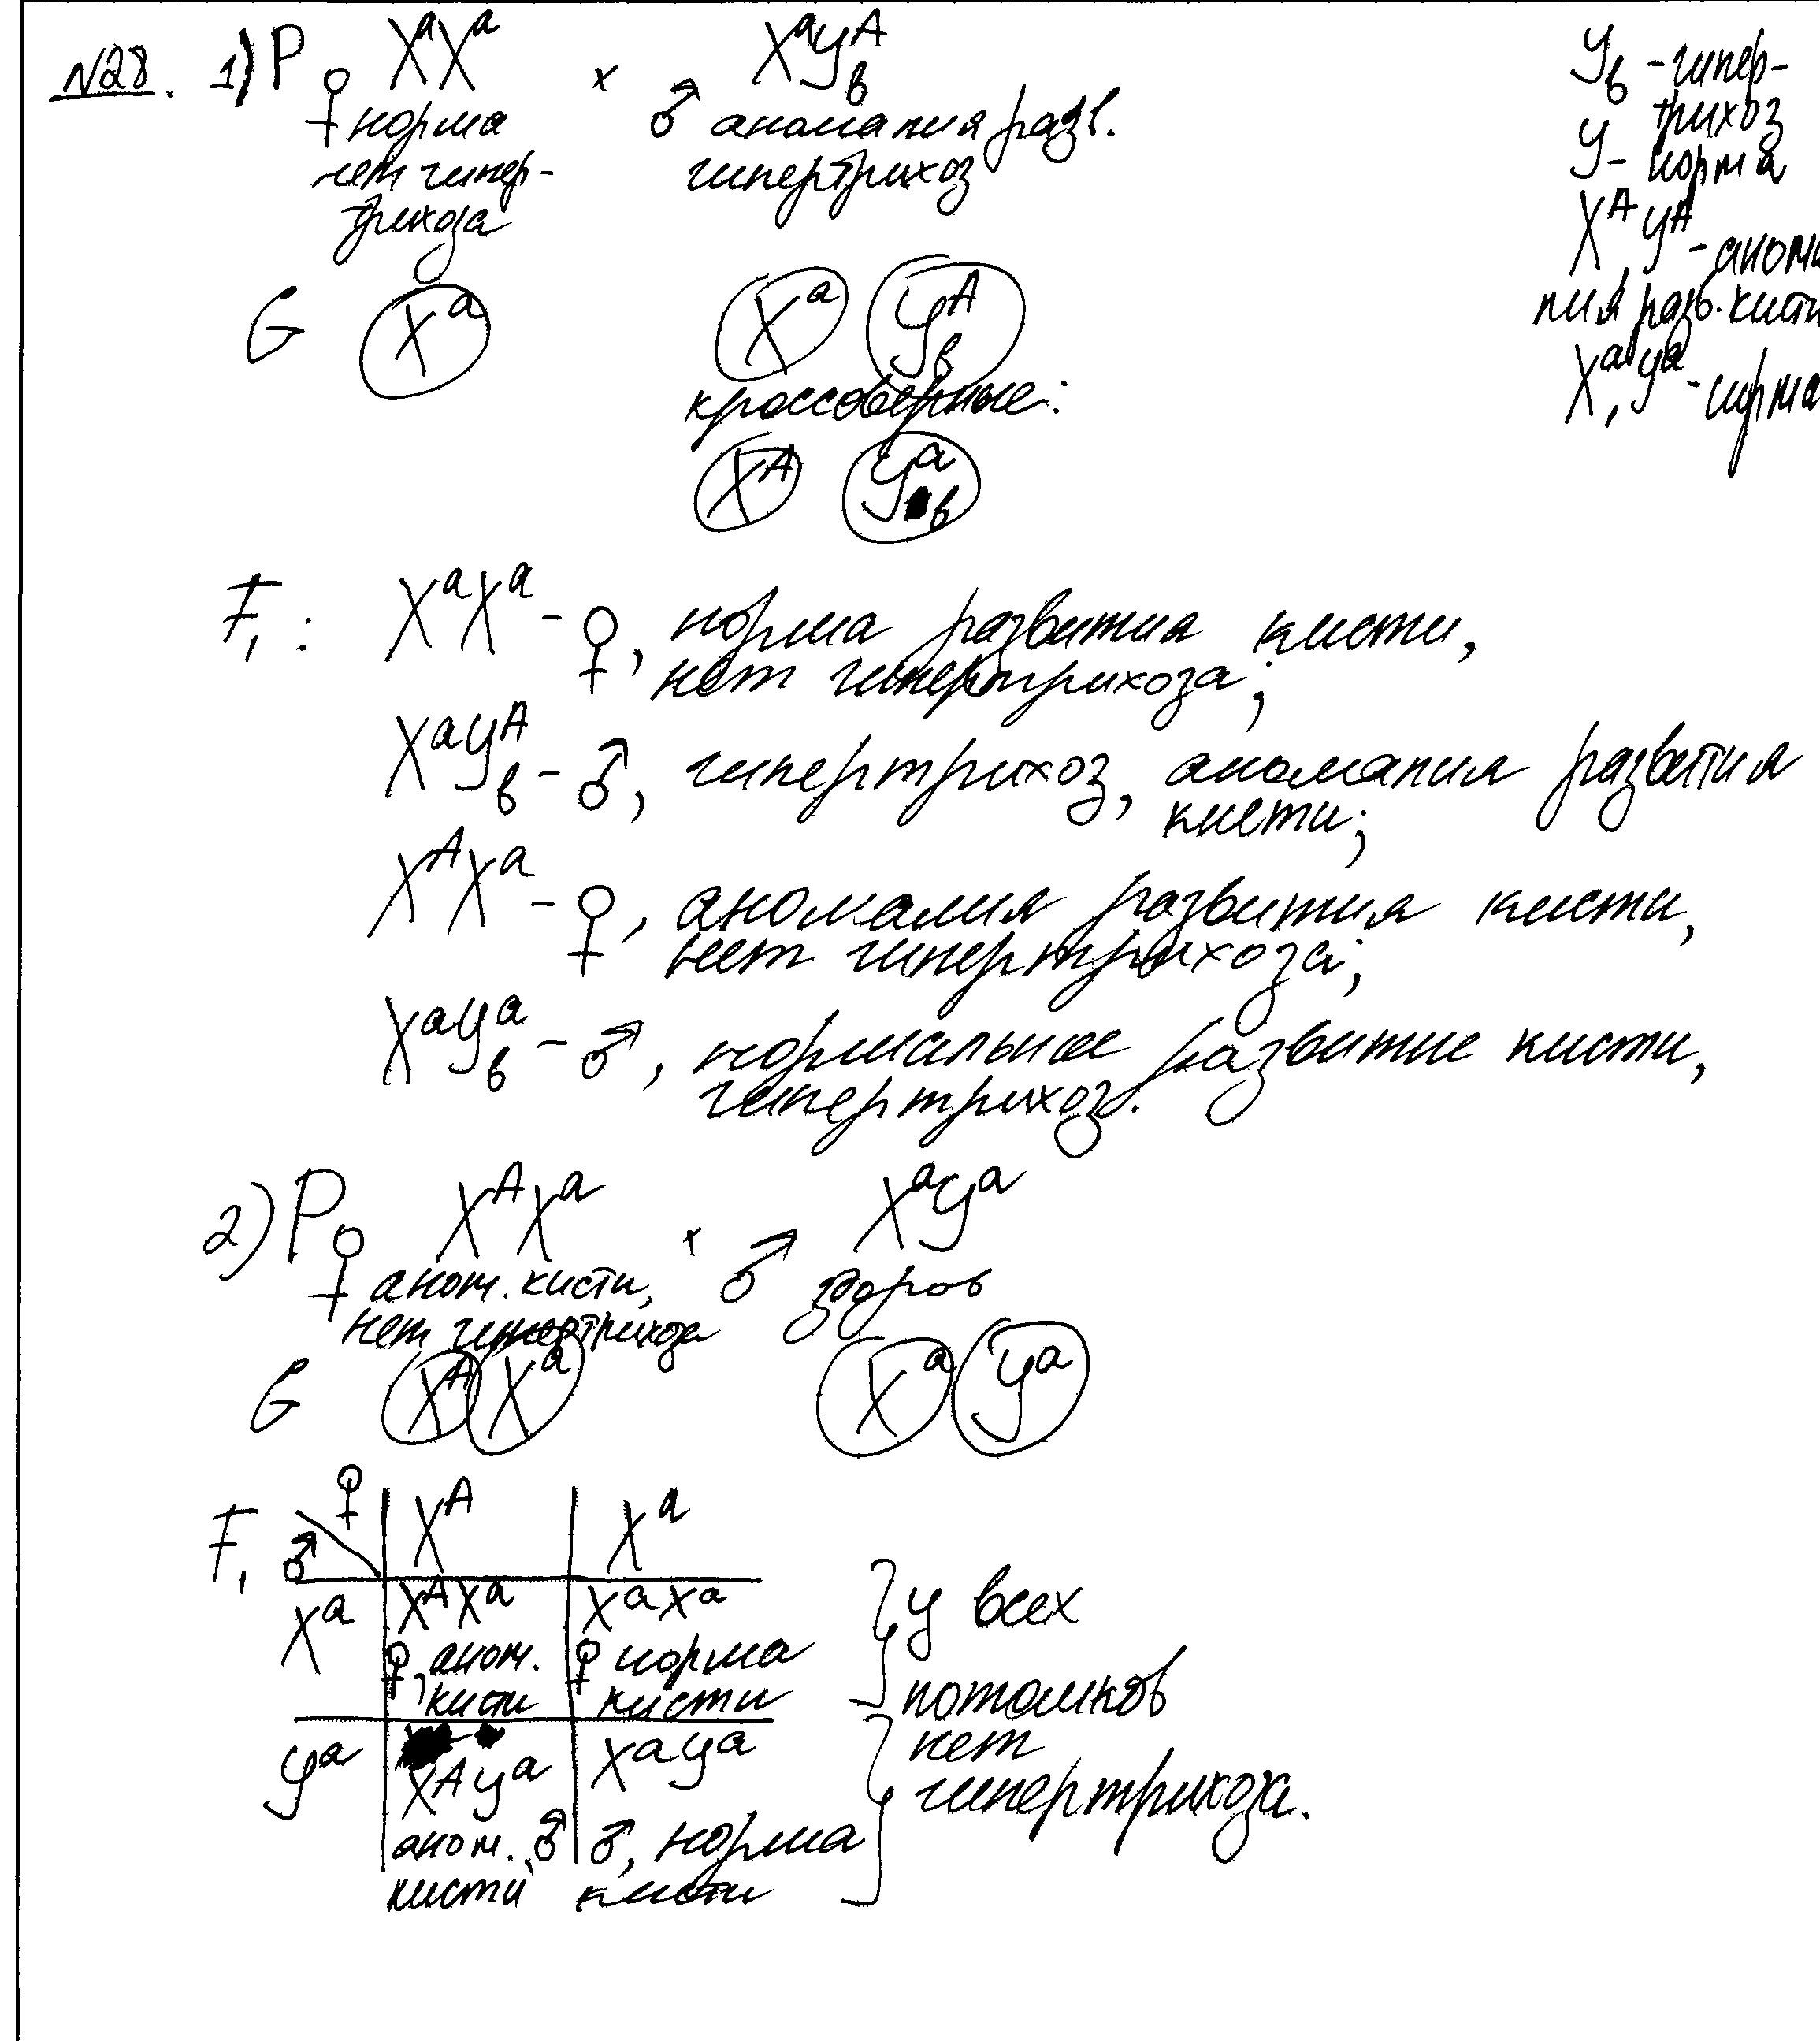 N28. 1) P ♀ XᵃXᵃ × ♂ XᵃYᴬв
норма аномалия разв.
нет гипер- гипертрихоз
трихоза
Yв - гипер-
трихоз
Y - норма
Xᴬ, Yᴬ - анома
лия разв. кисти
Xᵃ, Yᵃ - норма
G Xᵃ Xᵃ Yᴬв
кроссоверные:
Xᴬ Yᵃв
F₁: XᵃXᵃ - ♀, норма развития кисти,
нет гипертрихоза;
XᵃYᴬв - ♂, гипертрихоз, аномалия развития
кисти;
XᴬXᵃ - ♀, аномалия развития кисти,
нет гипертрихоза;
XᵃYᵃв - ♂, нормальное развитие кисти,
гипертрихоз.
2) P ♀ XᴬXᵃ × ♂ XᵃYᵃ
аном. кисти, здоров
нет гипертрихоза
G Xᴬ Xᵃ Xᵃ Yᵃ
F₁ ♀ ♂ Xᴬ Xᵃ
Xᵃ XᴬXᵃ XᵃXᵃ
♀, аном. ♀ норма
кисти кисти
Yᵃ XᴬYᵃ XᵃYᵃ
аном. ♂ ♂, норма
кисти кисти
у всех
потомков
нет
гипертрихоза.